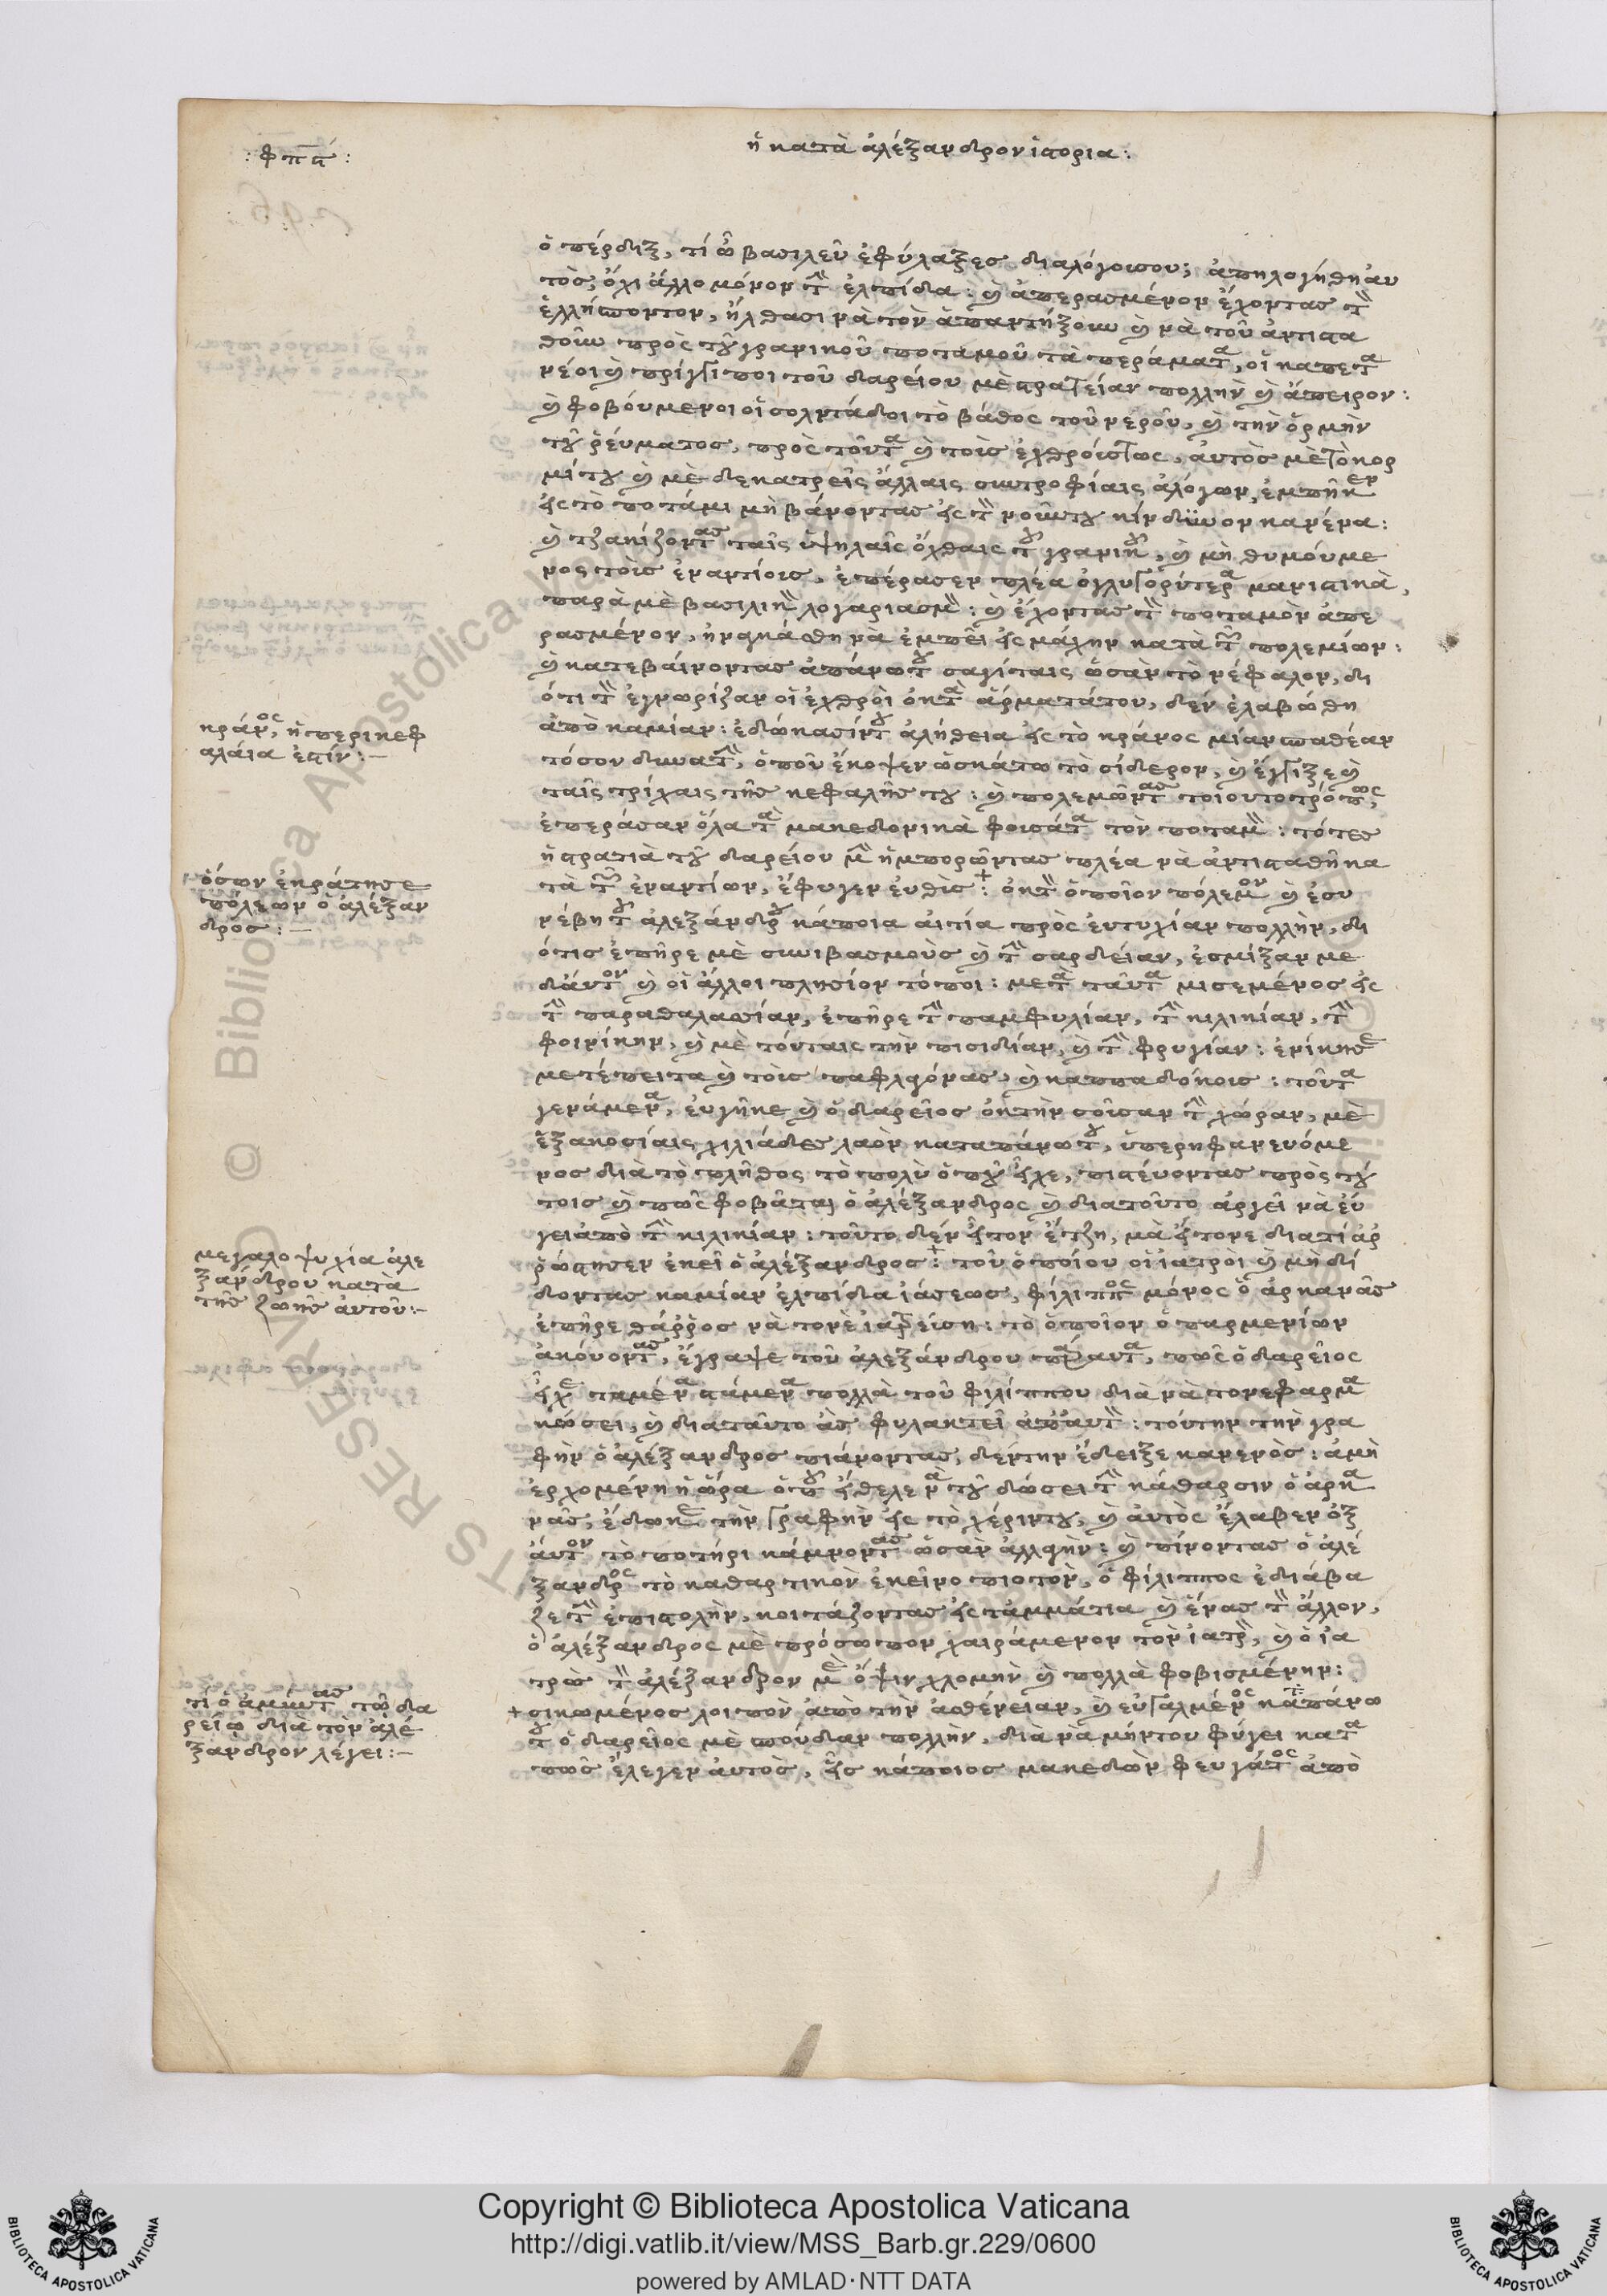 : φπϛ :
ἡ κατὰ ἀλέξανδρον ἱστορια :
ὁ πέρδιξ, τί ὦ βασιλεῦ ἐφύλαξες διαλόγουσου; ἀπηλογήθη αυ
τὸς, ὄχι ἄλλο μόνον τὴν ἐλπίδα : καὶ ἀπερασμένον ἔχοντας τὸν
ἑλλήσποντον, ἦλθασι νὰ τὸν ἀπαντήξουν καὶ νὰ τοῦ ἀντιστα
θοῦν πρὸς τοῦ γρανικοῦ ποταμοῦ τὰ περάματα, οἱ καπετα
νέοι καὶ πρίγκιποι τοῦ δαρείου μὲ στρατείαν πολλὴν καὶ ἄπειρον :
καὶ φοβούμενοι οἱ σολντάδοι τὸ βάθος τοῦ νεροῦ, καὶ τὴν ὁρμὴν
τοῦ ῥεύματος, πρὸς τοῦτα καὶ τοὶς ἐχθροίστως, ἀυτὸς μὲ τὸ κορ
μί του καὶ μὲ δεκατρεῖς ἄλλαις συντροφίαις ἀλόγων, ἐμπῆκεν
εἰς τὸ ποτάμι μὴ βάνοντας εἰς τὸν νοῦντου κίνδυνον κανένα :
καὶ τζακίζοντας ταῖς ὑψηλαῖς ὄχθαις τοῦ γρανικοῦ, καὶ μὴ θυμούμε
νος τοὶς ἐναντίοις, ἐπέρασεν πλέα ὀγλυγορύτερα μανιστικὰ,
παρὰ μὲ βασιλικὸν λογαριασμὸν : καὶ ἔχοντας τὸν ποταμὸν ἀπε
ρασμένον, ἠναγκάσθη νὰ ἐμπεῖ εἰς μάχην κατὰ τῶν πολεμίων :
καὶ κατεβαίνοντας ἀπάνωτου σαγίταις ὡσὰν τὸ νέφαλον, δι
ότι τὸν ἐγνωρίζαν οἱ ἐχθροὶ ὀκτὰ ἄρματάτου, δὲν ἐλαβώθη
ἀπὸ καμίαν : ἐδώκασίντου ἀλήθεια εἰς τὸ κράνος μίαν σπαθέαν
τόσον δυνατὴν, ὁποῦ ἔκοψεν ὡσκάτω τὸ σίδερον, καὶ ἔγγιξε καὶ
ταῖς τρίχαις τῆς κεφαλῆς του : καὶ πολεμῶντας τοιουτοτρόπως,
ἐπεράσαν ὅλα τὰ μακεδονικὰ φουσάτα τὸν ποταμὸν : τότες
ἡ στρατιὰ τοῦ δαρείου μὴν ἠμπορῶντας πλέα νὰ ἀντισταθῇ κα
τὰ τῶν ἐναντίων, ἔφυγεν ἐυθὶς : ὀκτὸν ὁποῖον πόλεμον καὶ ἐσυ
νέβη τοῦ ἀλεξάνδρου κάποια αἰτία πρὸς ἐυτυχίαν πολλὴν, δι
ότις ἐπῆρε μὲ συνιβασμοὺς καὶ τὴν σαρδείαν, ἐσμίξαν με
δάυτον καὶ οἱ ἄλλοι πλησίον τόποι : μετὰ ταῦτα μισεμένος εἰς
τὴν παραθαλασσίαν, ἐπῆρε τὴν παμφυλίαν, τὴν κιλικίαν, τὴν
φοινίκην, καὶ μὲ τόυταις τὴν πισιδίαν, καὶ τὴν φρυγίαν : ἐνίκησε
μετέπειτα καὶ τοὶς παφλαγόνας, καὶ καππαδόκοις : τοῦτα
γενάμενα, ἐυγῆκε καὶ ὁ δαρεῖος ὀκτὴν σοῦσαν τὴν χώραν, μὲ
ἑξακοσίαις χιλιάδες λαὸν καταπάνωτου, ὑπερηφανευόμε
νος διὰ τὸ πλῆθος τὸ πολὺ ὁποῦ εἶχε, πιστέυοντας πρὸς τού
τοις καὶ πῶς φοβᾶται ὁ ἀλέξανδρος καὶ διατοῦτο ἀργεῖ νὰ ἐύ
γει ἀπὸ τὴν κιλικίαν : τοῦτο δὲν ἦτον ἔτζη, μὰ ἦτονε διατί ἀρ
ρώστησεν ἐκεῖ ὁ ἀλέξανδρος : τοῦ ὁποίου οἱ ἰατροὶ καὶ μὴ δί
δοντας καμίαν ἐλπίδα ἰάσεως, φίλιππος μόνος ὁ ἀρκανᾶς
ἐπῆρε θάρρος νὰ τονὲ ἰατρέυση : τὸ ὁποῖον ὁ παρμενίων
ἀκόυοντας, ἔγραψε τοῦ ἀλεξάνδρου πῶς ὁ δαρεῖος
εἶχε ταμένα στάμενα πολλὰ τοῦ φιλίππου διὰ νὰ τονε φαρμα
κώσει, καὶ διαταῦτο ἂς φυλακτεῖ ἀπαυτὸν : τούτην τὴν γρα
φὴν ὁ ἀλέξανδρος πιάνοντας, δέντην ἔδειξε κανενὸς : ἀμὴ
ἐρχομένη ἡ ὥρα ὁποῦ ἤθελε νὰ τοῦ δώσει τὴν κάθαρσιν ὁ ἀρκα
νᾶς, ἔδωκε τὴν γραφὴν εἰς τὸ χέριντου, καὶ ἀυτὸς ἔλαβεν ὀξ
ἀυτὸν τὸ ποτήρι κάμνοντας ὡσὰν ἀλλαγὴν : καὶ πίνοντας ὁ ἀλέ
ξανδρος τὸ καθαρτικὸν ἐκεῖνο πιοτὸν, ὁ φίλιππος ἐδιάβα
ζε τὴν ἐπιστολὴν, κοιτάζοντας εἰς τἀμμάτια καὶ ἕνας τὸν ἄλλον,
ὁ ἀλέξανδρος μὲ πρόσωπον χαιράμενον τὸν ἰατρὸν, καὶ ὁ ἰα
τρὸς τὸν ἀλέξανδρον μὲ ὄψιν χλομὴν καὶ πολλὰ φοβισμένην :
+ σικωμένος λοιπὸν ἀπὸ τὴν ἀσθένειαν, καὶ ἐυγαλμένος καταπάνω
του ὁ δαρεῖος μὲ σπούδαν πολλὴν, διὰ νὰ μήντου φύγει κατὰ
πῶς ἔλεγεν ἀυτὸς, εἷς κάποιος μακεδὼν φευγάτος ἀπὸ
κράνος, ἡ περικεφ
αλάια ἐστίν : –
ὅσων ἐκράτησε
πόλεων ὁ ἀλέξαν
δρος : –
μεγαλοψυχία ἀλε
ξανδρου κατὰ
τῆς ζωῆς ἀυτοῦ : –
τί ὁ ἀμύντας τῶ δα
ρείω διὰ τὸν ἀλέ
ξανδρον λέγει : –
Copyright © Biblioteca Apostolica Vaticana
http://digi.vatlib.it/view/MSS_Barb.gr.229/0600
powered by AMLAD·NTT DATA